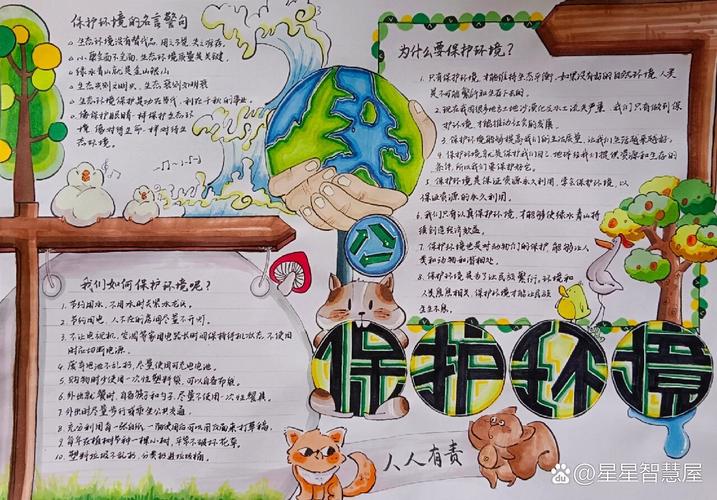 保护环境的名言警句
生态环境没有替代品,用之不觉,失之难存。
小康全面不全面,生态环境质量是关键。
绿水青山就是金山银山
生态兴则文明兴,生态衰则文明衰
生态环境保护是功在当代、利在千秋的事业。
像保护眼睛一样保护生态环
境,像对待生命一样对待生
态环境
为什么要保护环境?
1. 只有保护环境,才能维持生态平衡,如果没有好的自然环境,人类
是不可能繁衍和生存下去的。
2. 现在我国很多地方土地沙漠化水土流失严重,我们只有做到保
护环境,才能推动社会的发展。
3. 保护环境能够提高我们的生活质量,让我们生活越来越好。
4. 保护环境就是保护我们自己,地球给我们提供资源和生存的
条件,所以我们要保护她。
5. 保护环境是保证资源永久利用,学会保护环境,以
保证资源的永久利用。
6. 我们只有认真保护环境,才能够使绿水青山持
续创造经济效益。
7. 保护环境也是对动物们的保护,能够让人
类和动物和谐相处。
8. 保护环境是为了让民族繁衍,环境和
人类息息相关,保护环境才能让民族
生生不息。
我们如何保护环境呢?
1. 节约用水,不用水时关紧水龙头。
2. 节约用电,人不在的房间尽量不开灯。
3. 不让电视机、空调等家用电器长时间保持待机状态,不使用
时应切断电源。
4. 废弃电池不乱扔,尽量使用可充电电池。
5. 购物时少使用一次性塑料袋,可以自备布袋。
6. 外出就餐时,自备筷子和勺子,尽量不使用一次性餐具。
7. 外出时尽量步行或乘坐公共交通。
8. 充分利用每一张白纸,一面使用后可以用反面来打草稿。
9. 每年在植树节种一棵小树,平常不破坏花草。
10. 塑料垃圾不乱扔,分类扔进垃圾桶。
保护环境
人人有责
星星智慧屋